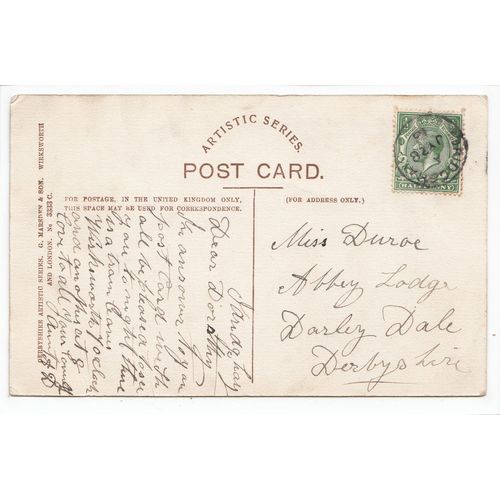 ARTISTIC SERIES.
POST CARD.
FOR POSTAGE, IN THE UNITED KINGDOM ONLY,
THIS SPACE MAY BE USED FOR CORRESPONDENCE.
(FOR ADDRESS ONLY.)
DERBYSHIRE ARTISTIC SERIES. G. MARSDEN & SON, WIRKSWORTH
AND LONDON. No 3333 C.
HALFPENNY
Miss Duroe
Abbey Lodge
Darley Dale
Derbyshire
Sunday
Dear Dorothy
In answer to your
post card we
all be pleased to see
you to night there
is a train leaves
Wirksworth 7 oclock
and another at 8
Love to all your family